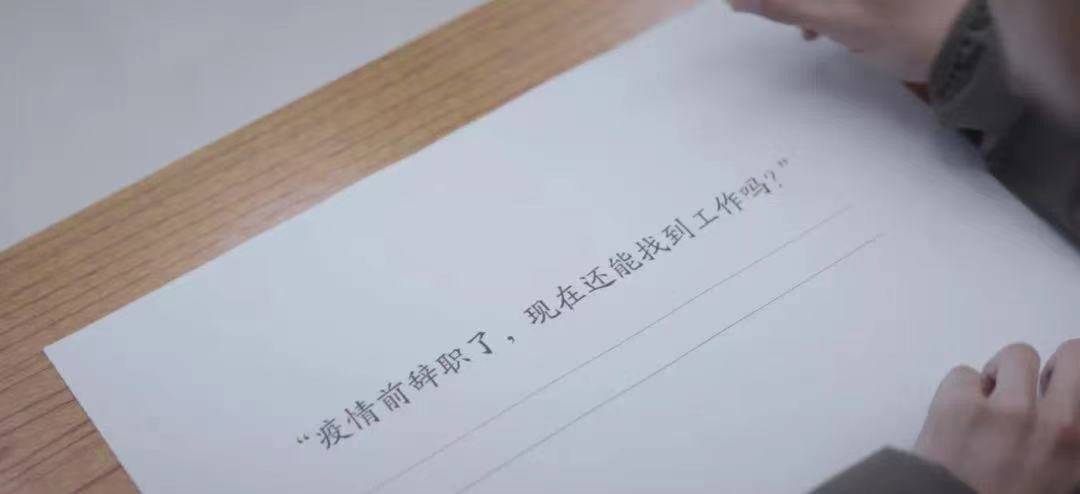 “疫情前辞职了，现在还能找到工作吗？”